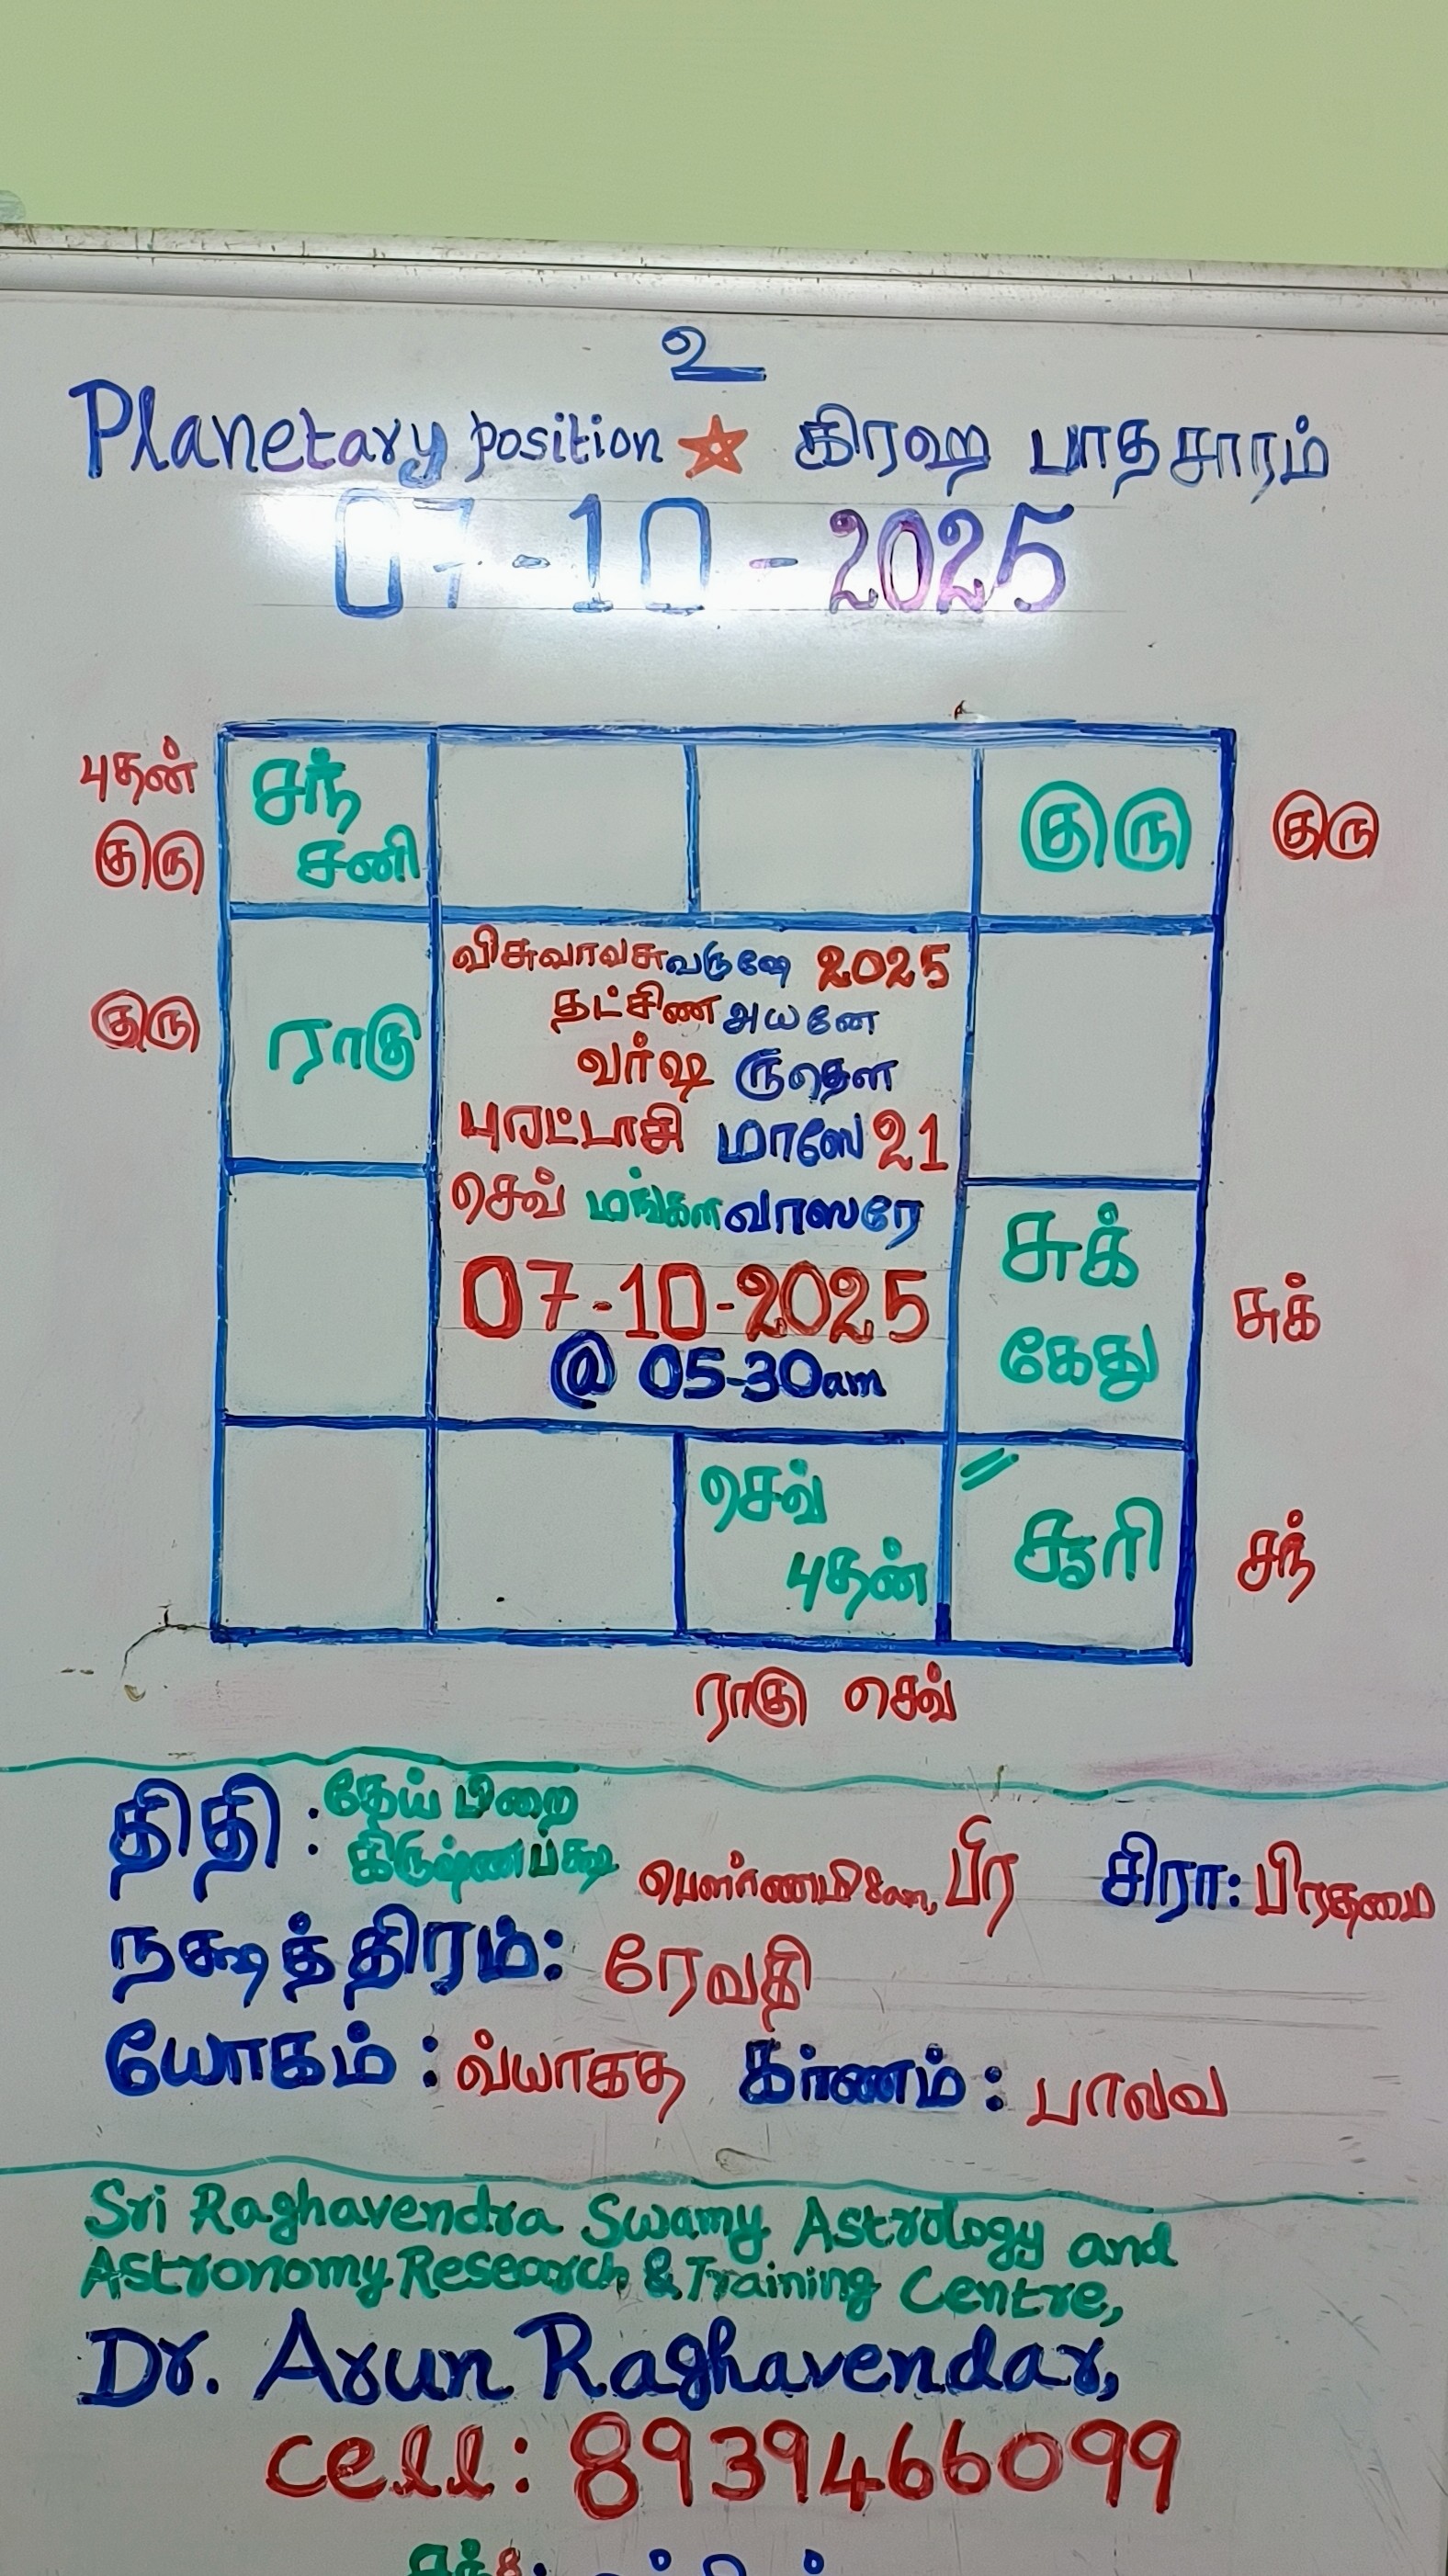 உ
Planetary position ☆ கிரஹ பாதசாரம்
07-10-2025
புதன்
குரு
சந்
சனி
குரு
குரு
குரு
ராகு
விசுவாவசுவருஷே 2025
தட்சிண அயனே
வர்ஷ ருதௌ
புரட்டாசி மாஸே 21
செவ் மங்களவாஸரே
07-10-2025
@ 05-30am
சுக்
கேது
சுக்
செவ்
புதன்
சூரி
சந்
ராகு செவ்
திதி : தேய் பிறை
கிருஷ்ணபக்ஷ பௌர்ணமி 8am, பிர சிரா: பிரதமை
நக்ஷத்திரம்: ரேவதி
யோகம் : வ்யாகத கர்ணம் : பாலவ
Sri Raghavendra Swamy Astrology and
Astronomy Research & Training Centre,
Dr. Arun Raghavendar,
cell: 8939466099